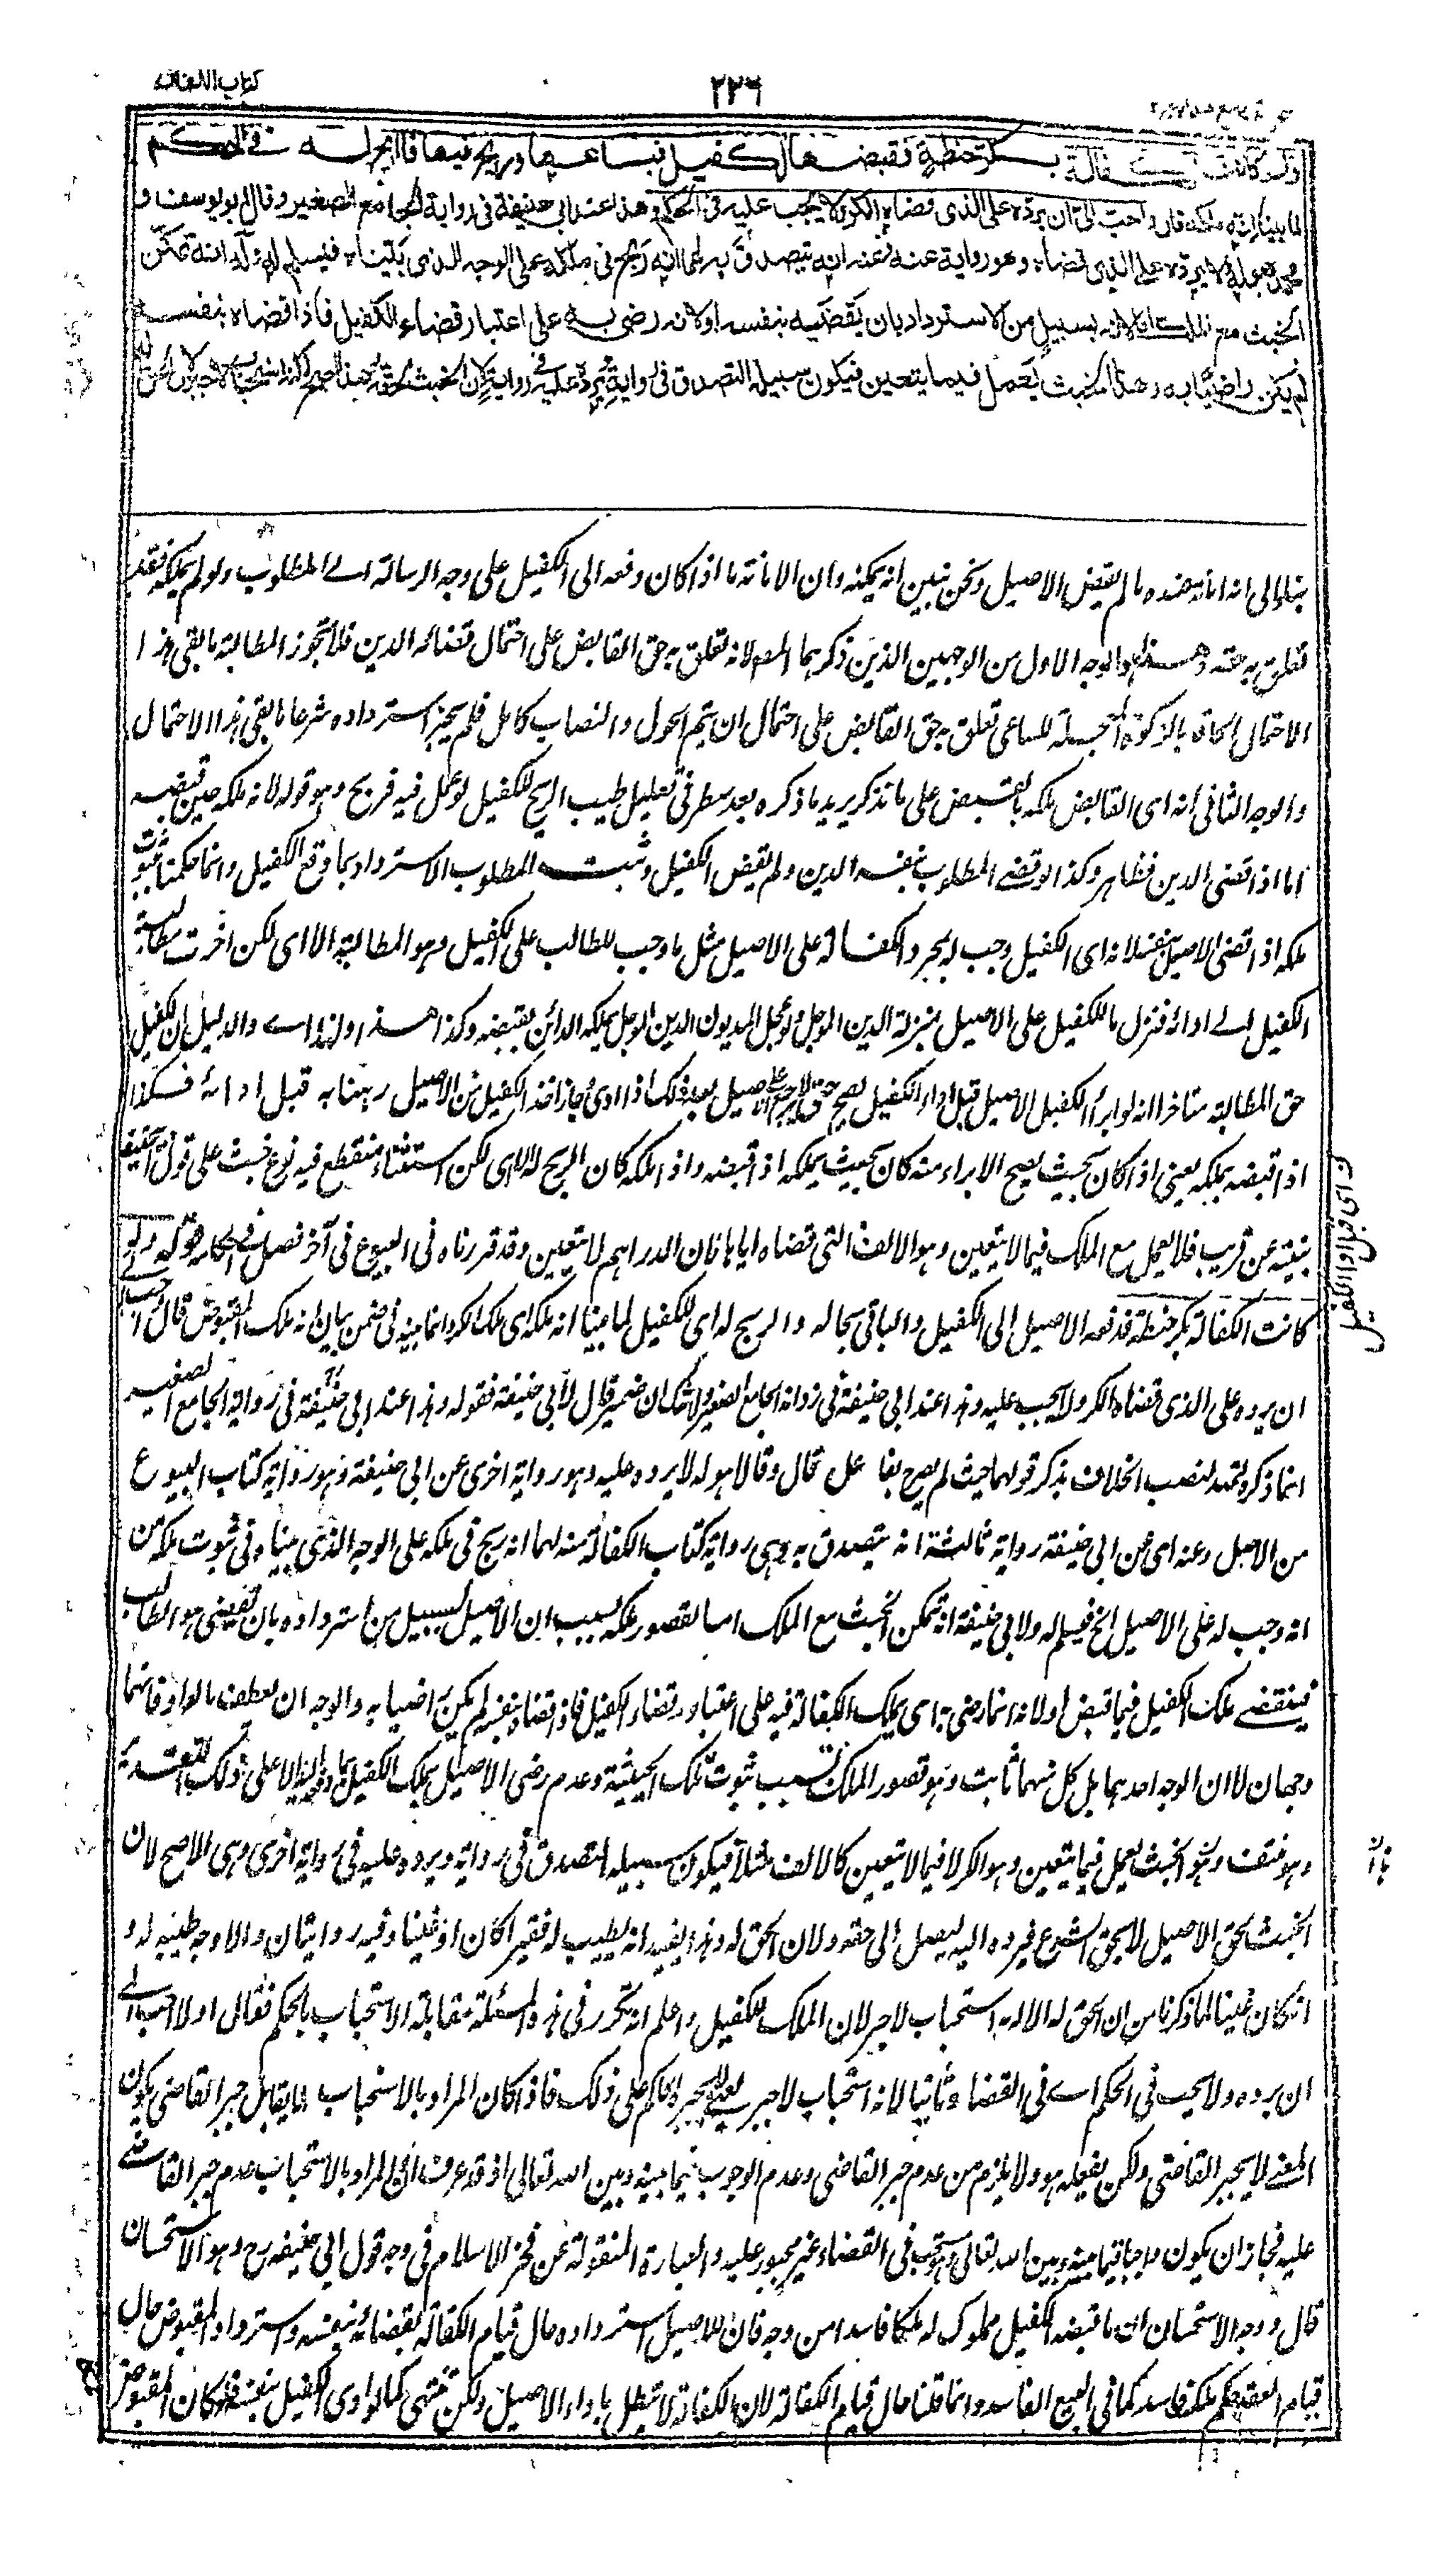 كتاب الكفالة
٢٢٦
ولو كانت الكفالة بكر حنطة فقبضها الكفيل فباعها وربح فيها فالربح له في الحكم
لما بينا انه ملكه قال واحب الي ان يرده على الذي قضاه الكر ولا يجب عليه في الحكم وهذا عند ابي حنيفة في رواية الجامع الصغير وقال ابو يوسف و
محمد هو له ولا يرده على الذي قضاه وهو رواية عنه وعنه انه يتصدق به لهما انه ربح في ملكه على الوجه الذي بيناه فيسلم له وله انه تمكن
الخبث مع الملك اما لانه بسبيل من الاسترداد بان يقضيه بنفسه او لانه رضي به على اعتبار قضاء الكفيل فاذا قضاه بنفسه
لم يكن راضيا به وهذا الخبث يعمل فيما يتعين فيكون سبيله التصدق في رواية ويرده عليه في رواية لان الخبث لحقه وهذا اصح لكنه استحباب لا جبر لان الحق له
بناء على انه امانة عنده ما لم يقض الاصيل ونحن نبين انه يملكه وان الامانة ما اذا كان دفعه الى الكفيل على وجه الرسالة الى المطلوب ولو لم يملكه فقد
تعلق به حقه وهذا هو الوجه الاول من الوجهين الذين ذكرهما المص ولانه تعلق به حق القابض على احتمال قضائه الدين فلا تجوز المطالبة ما بقي هذا
الاحتمال الحاقا بالزكوة المعجلة للساعي تعلق به حق القابض على احتمال ان يتم الحول والنصاب كامل فلم يجز استرداده شرعا ما بقي هذا الاحتمال
والوجه الثاني انه اى القابض ملكه بالقبض على ما نذكر يريد ما ذكره بعد سطر في تعليل طيب الربح للكفيل لو عمل فيه فربح وهو قوله لانه ملكه حين قبضه
اما اذا قضى الدين فظاهر وكذا لو قضى المطلوب بنفسه الدين ولم يقض الكفيل وثبت للمطلوب الاسترداد بما دفع للكفيل وانما حكمنا بثبوت
ملكه اذا قضى الاصيل بنفسه لانه اى الكفيل وجب له بمجرد الكفالة على الاصيل مثل ما وجب للطالب على الكفيل وهو المطالبة الا اى لكن اخرت مطالبة
الكفيل الى ادائه فنزل ما للكفيل على الاصيل منزلة الدين المؤجل ولو عجل المديون الدين المؤجل يملكه الدائن بقبضه وكذا هذا ولهذا اى والدليل ان للكفيل
حق المطالبة متاخرا انه لو ابرأ الكفيل الاصيل قبل اداء الكفيل يصح حتى لا يرجع على الاصيل بعد ذلك اذا ادى وجاز اخذ الكفيل من الاصيل رهنا به قبل ادائه فكذا
اذا قبضه يملكه يعني اذا كان بحيث يصح الابراء منه كان بحيث يملكه اذا قبضه واذا ملكه كان الربح له الا اى لكن استثناء منقطع فيه نوع خبث على قول ابي حنيفة
نبينه عن قريب فلا يعمل مع الملك فيما لا يتعين وهو الالف التي قضاه اياها فان الدراهم لا تتعين وقد قررناه في البيوع في آخر فصل في احكامه قوله ولو
كانت الكفالة بكر حنطة فدفعه الاصيل الى الكفيل والباقي بحاله والربح له اى للكفيل لما بينا انه ملكه اى ملك الكر وانما بينه في ضمن بيان انه ملك المقبوض قال احب الي
ان يرده على الذي قضاه الكر ولا يجب عليه وهذا عند ابي حنيفة في رواية الجامع الصغير ولا شك ان ضمير قال لابي حنيفة فقوله وهذا عند ابي حنيفة في رواية الجامع الصغير
انما ذكره تمهيدا لنصب الخلاف بذكر قولهما حيث لم يصرح بفاعل قال وقالا هو له لا يرده عليه وهو رواية اخرى عن ابي حنيفة وهو رواية كتاب البيوع
من الاصل وعنه اى عن ابي حنيفة رواية ثالثة انه يتصدق به وهي رواية كتاب الكفالة منه لهما انه ربح في ملكه على الوجه الذي بيناه في ثبوت ملكه من
انه وجب له على الاصيل الخ فيسلم له ولابي حنيفة انه تمكن الخبث مع الملك اما لقصور ملكه بسبب ان الاصيل بسبيل من استرداده بان يقضي هو الطالب
فينتقض ملك الكفيل فيما قبض او لانه انما رضي به اى بملك الكفالة فيه على اعتبار قضاء الكفيل فاذا قضاه بنفسه لم يكن راضيا به والوجه ان يعطف بالواو فانهما
وجهان لا ان الوجه احدهما بل كل منهما ثابت وهو قصور الملك بسبب ثبوت تلك الحيثية وعدم رضى الاصيل بملك الكفيل بما دفع اليه الا على ذلك التقدير
وهو منتف وهو الخبث يعمل فيما يتعين وهو الكر لا فيما لا يتعين كالالف مثلا فيكون سبيله التصدق في رواية ويرده عليه في رواية اخرى وهي الاصح لان
الخبث لحق الاصيل لا لحق الشرع فيرده اليه ليصل الى حقه ولان الحق له وهذا يفيد انه يطيب له فقيرا كان او غنيا وفيه روايتان والاوجه طيبه له و
ان كان غنيا لما ذكرنا من ان الحق له الا انه استحباب لا جبر لان الملك للكفيل واعلم انه تكرر في هذه المسئلة مقابلة الاستحباب بالحكم فقال اولا احب الى
ان يرده ولا يجب في الحكم اى في القضاء وثانيا الا انه استحباب لا جبر يعني لا يجبره الحاكم على ذلك فاذا كان المراد بالاستحباب ما يقابل جبر القاضي يكون
المعنى لا يجبر القاضي ولكن يفعله هو ولا يلزم من عدم جبر القاضي وعدم الوجوب فيما بينه وبين الله تعالى اذ قد عرف ان المراد بالاستحباب عدم جبر القاضي
عليه فجاز ان يكون واجبا فيما بينه وبين الله تعالى وهو مستحب في القضاء غير مجبور عليه والعبارة المنقولة عن فخر الاسلام في وجه قول ابي حنيفة رح وهو الاستحسان
قال ووجه الاستحسان ان ما قبضه الكفيل مملوك له ملكا فاسدا من وجه فان للاصيل استرداده حال قيام الكفالة بقضائه بنفسه واسترداد المقبوض حال
قيام العقد حكم ملك فاسد كما في البيع الفاسد وانما قلنا حال قيام الكفالة لان الكفالة لا تبطل باداء الاصيل ولكن تنتهي كما لو ادى الكفيل بنفسه فلو كان المقبوض